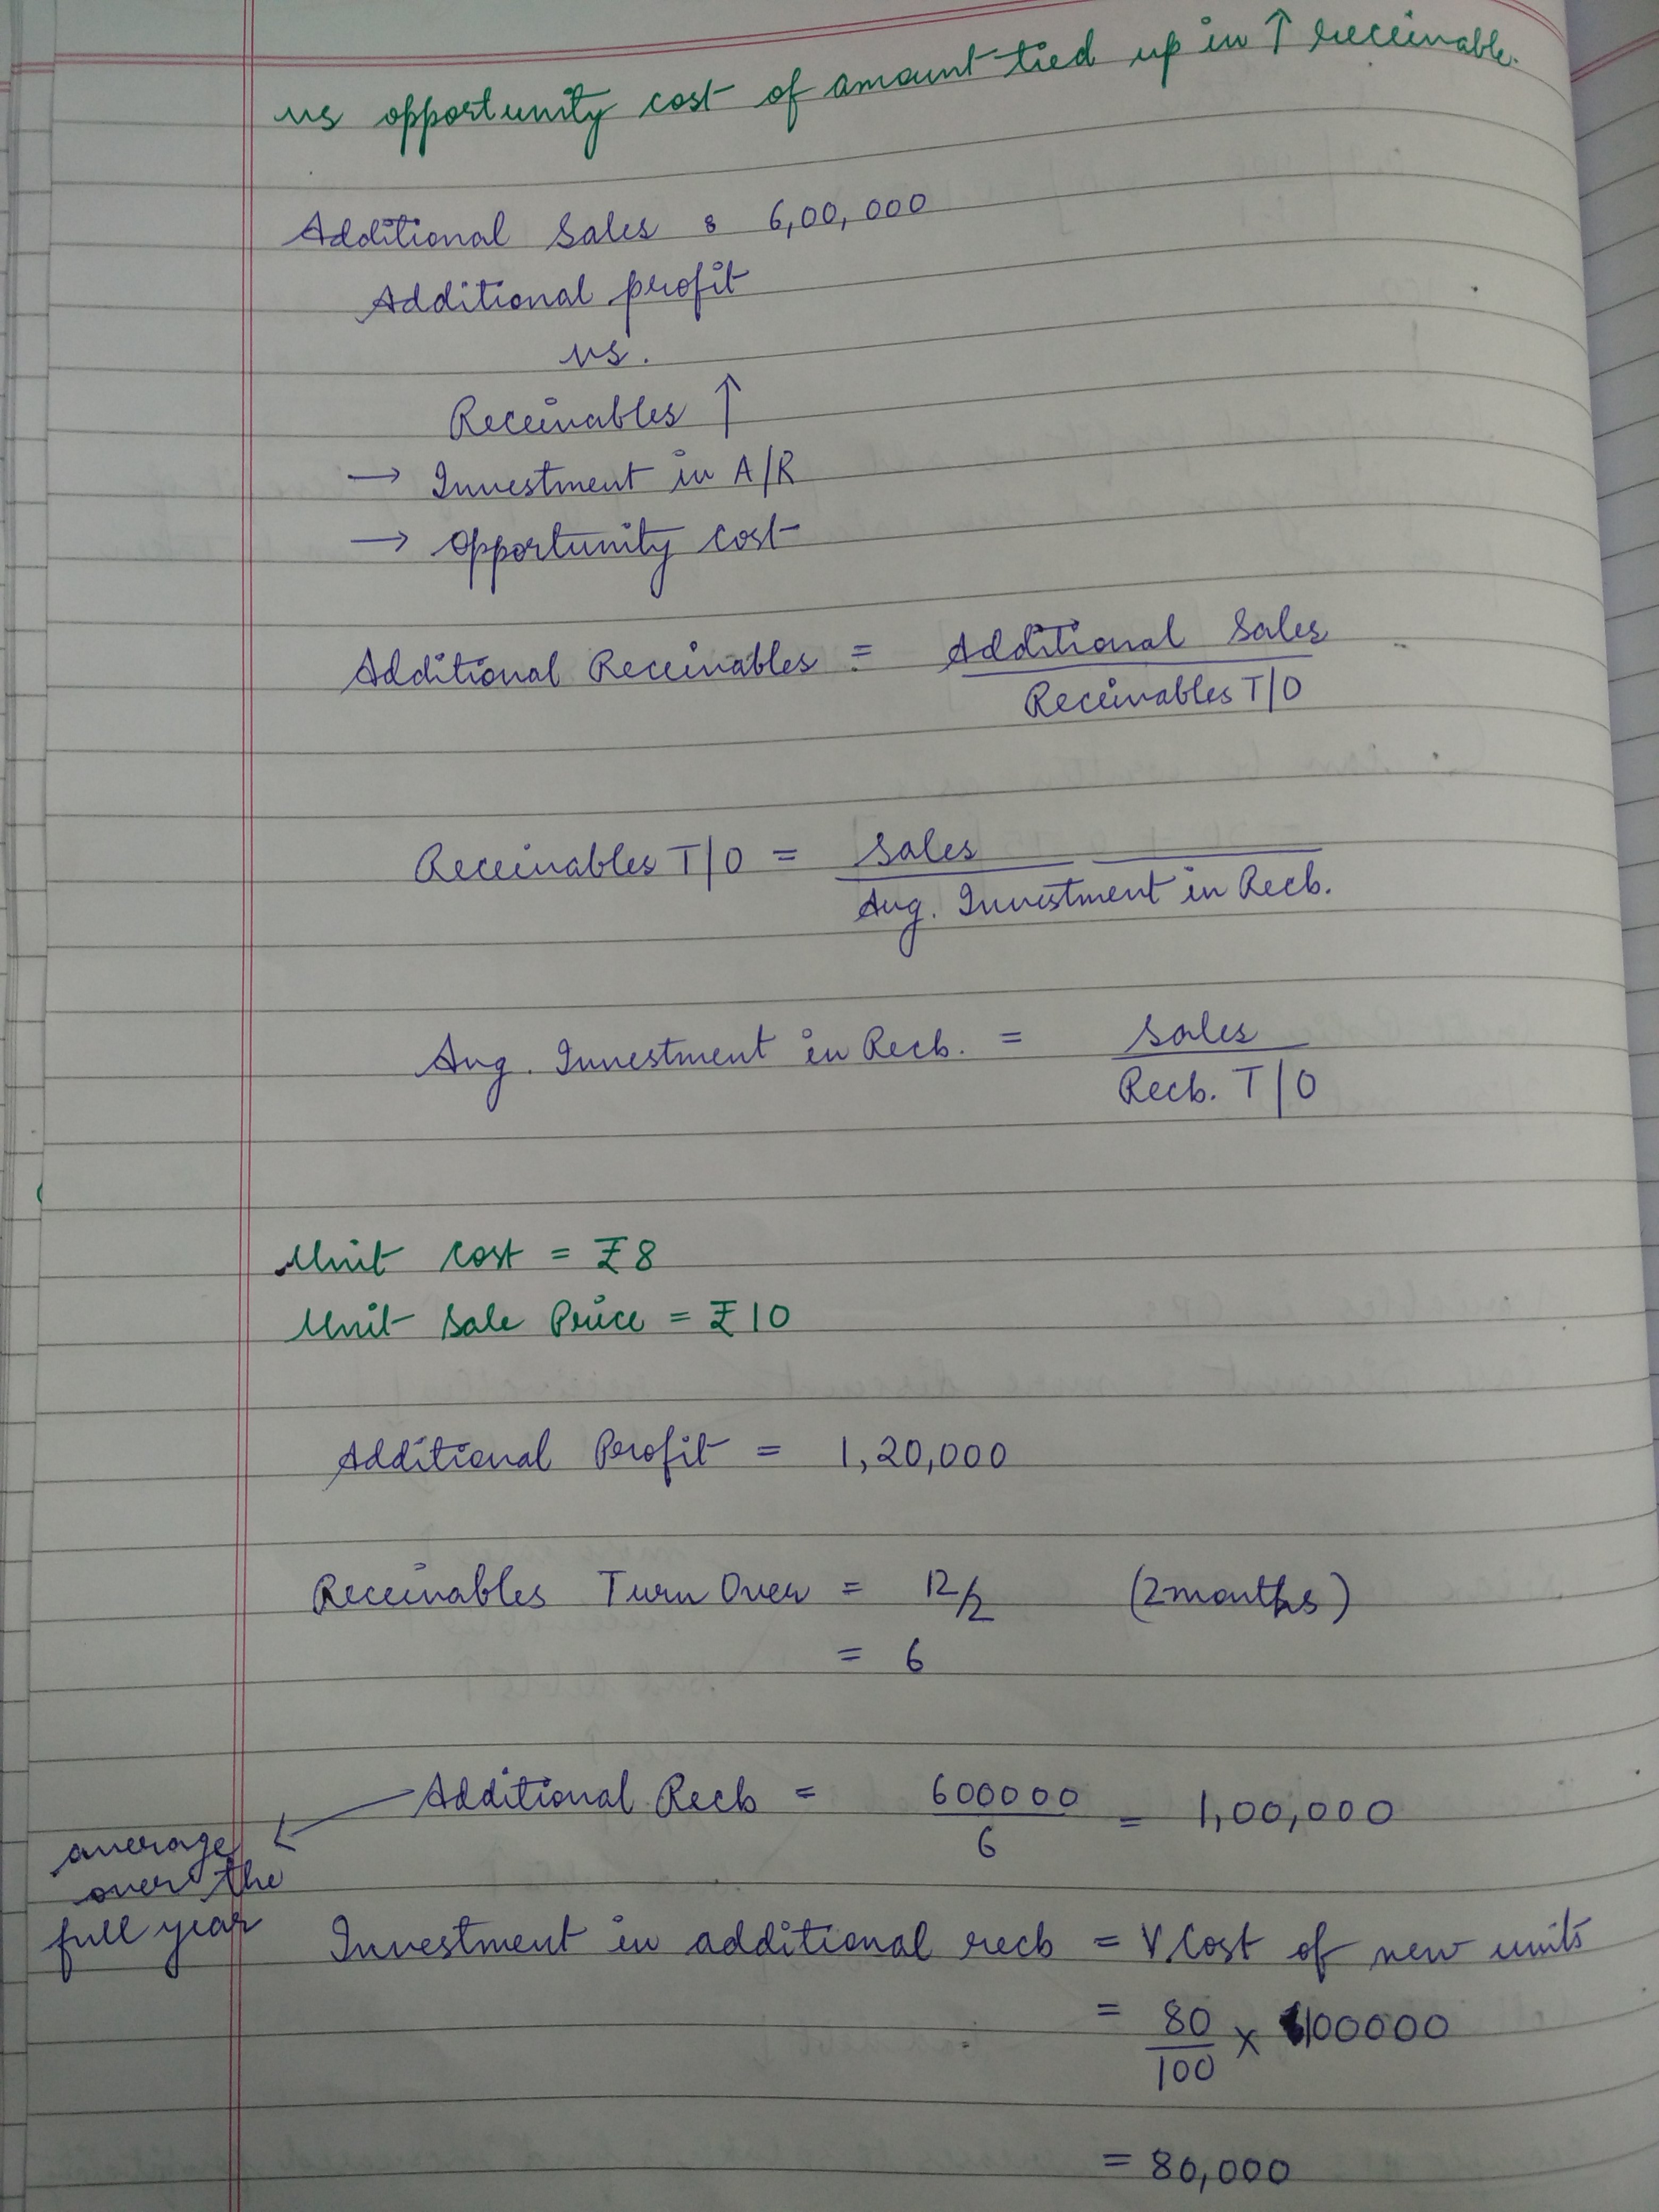 vs opportunity cost of amount tied up in ↑ receivable.
Additional Sales : 6,00,000
Additional profit
vs.
Receivables ↑
→ Investment in A/R
→ Opportunity cost
Additional Receivables = Additional Sales
Receivables T/O
Receivables T/O = Sales
Avg. Investment in Recb.
Avg. Investment in Recb. = Sales
Recb. T/O
Unit Cost = ₹8
Unit Sale Price = ₹10
Additional Profit = 1,20,000
Receivables Turn Over = 12/2 (2 months)
= 6
Additional Recb = 600000 = 1,00,000
6
average
over the
full year
Investment in additional recb = V.Cost of new units
= 80 × 100000
100
= 80,000